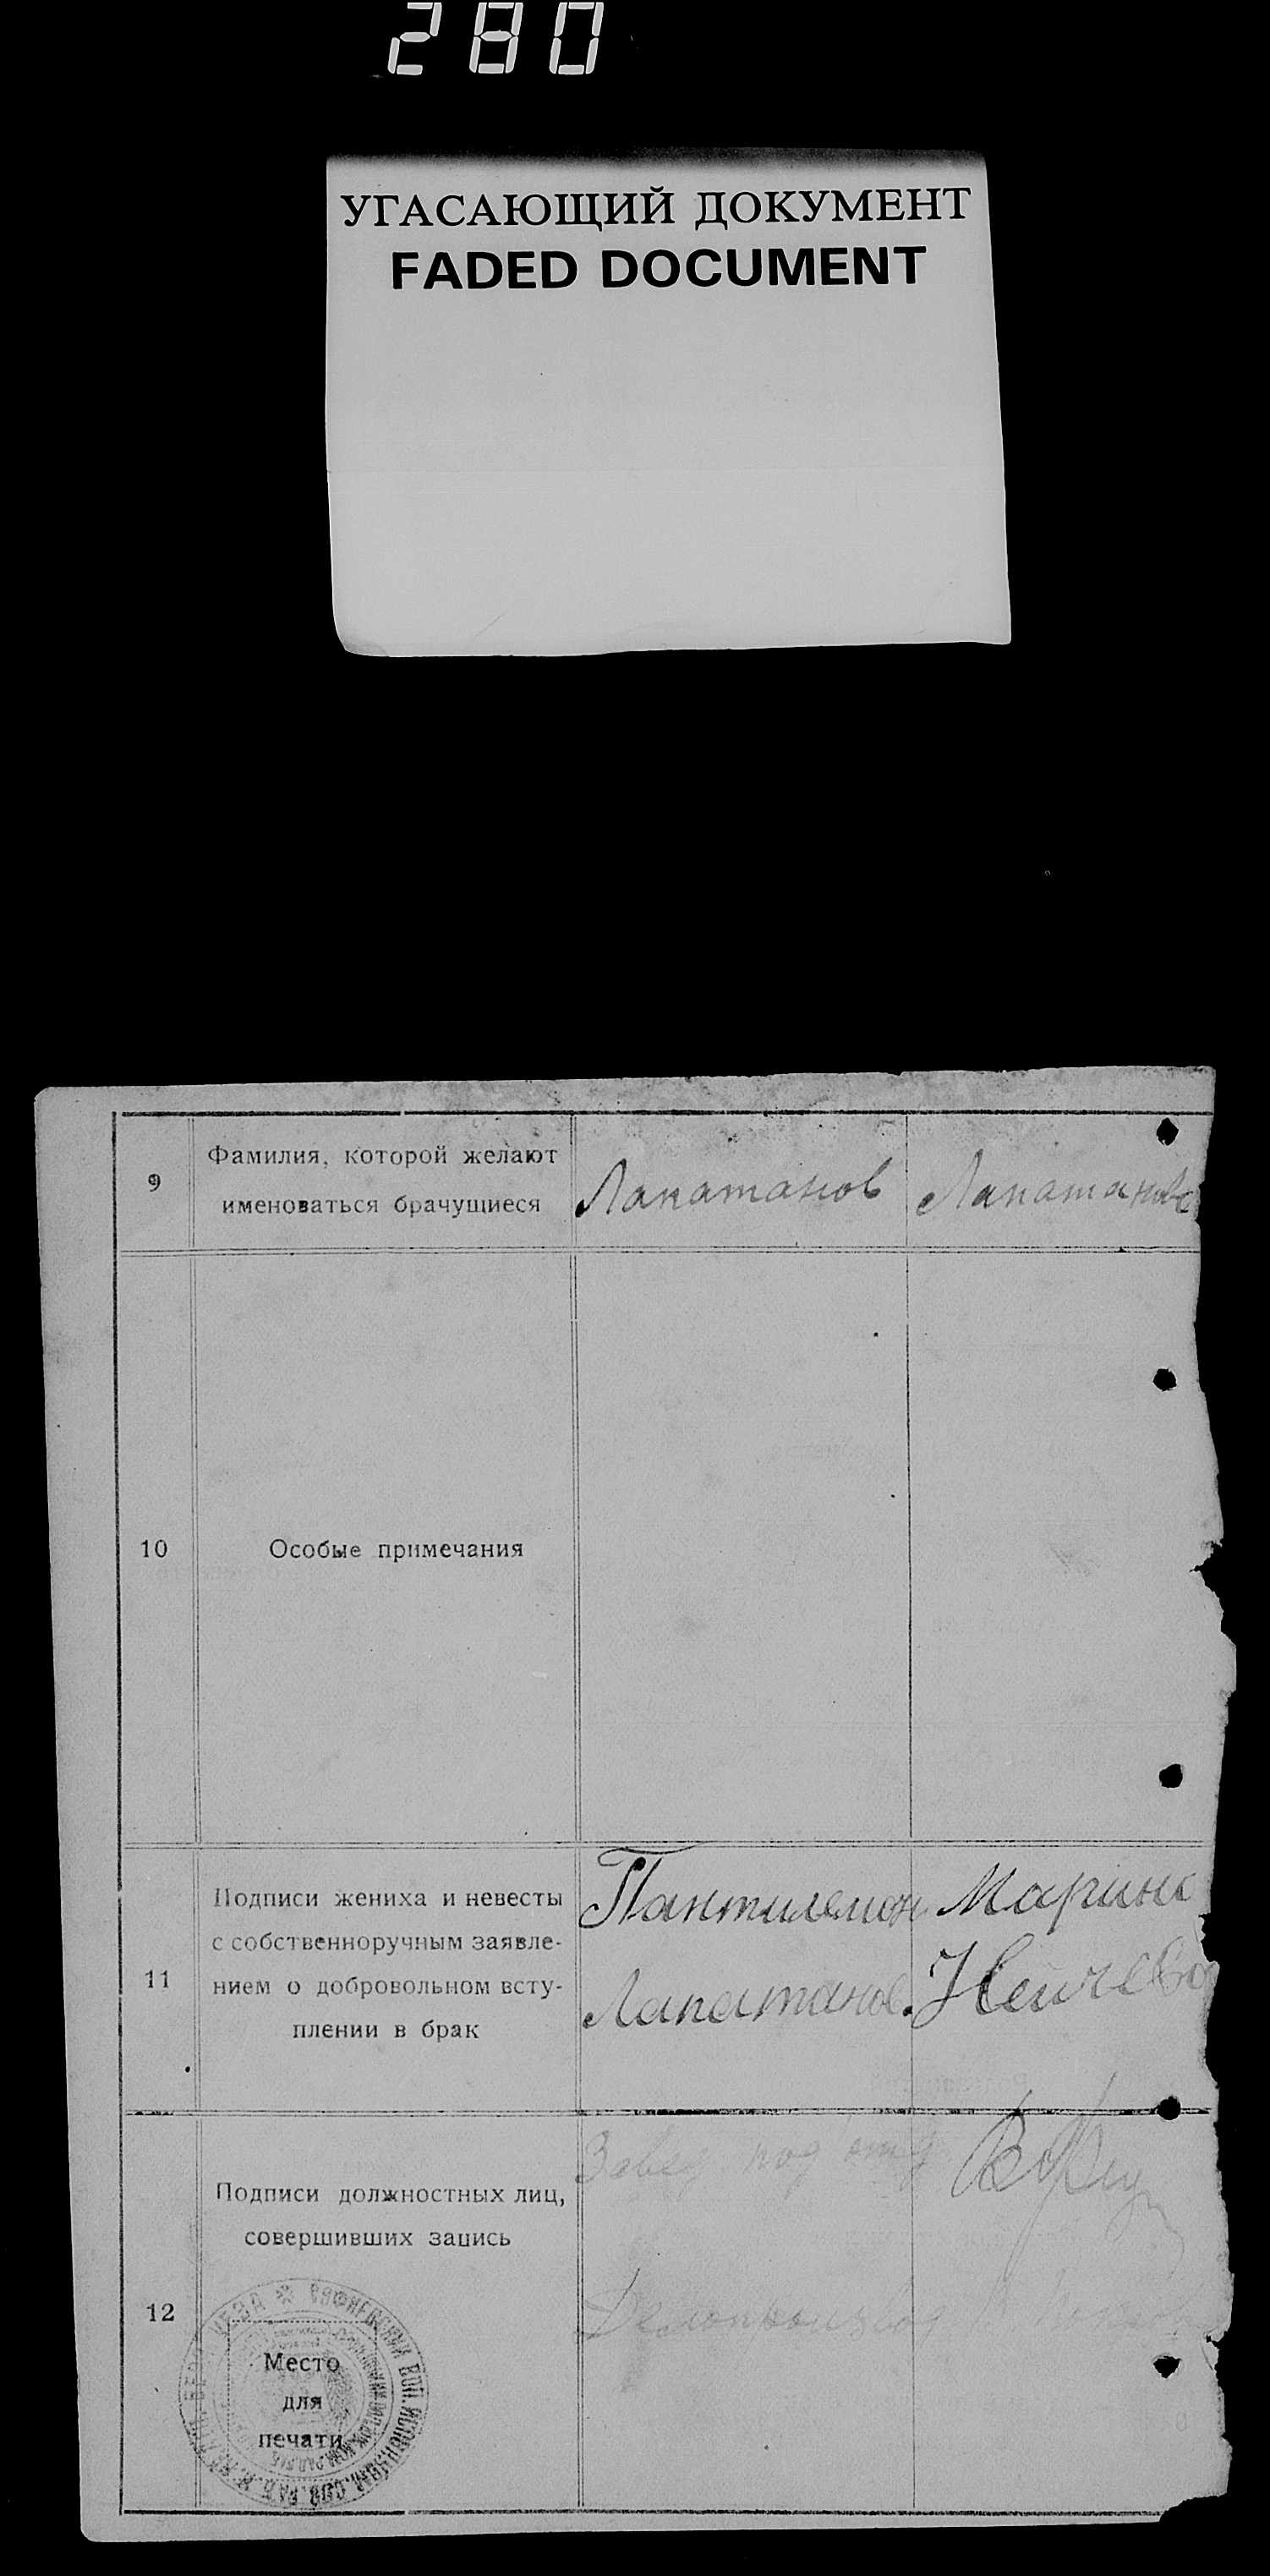 280
УГАСАЮЩИЙ ДОКУМЕНТ
FADED DOCUMENT
9
Фамилия, которой желают
именоваться брачущиеся
Лапатанов
Лапатанова
10
Особые примечания
11
Подписи жениха и невесты
с собственноручным заявле-
нием о добровольном всту-
плении в брак
Пантилемон
Лапатанов.
Марина
Нейчева
12
Подписи должностных лиц,
совершивших запись
Завед под отд
Делопроизвод
Место
для
печати